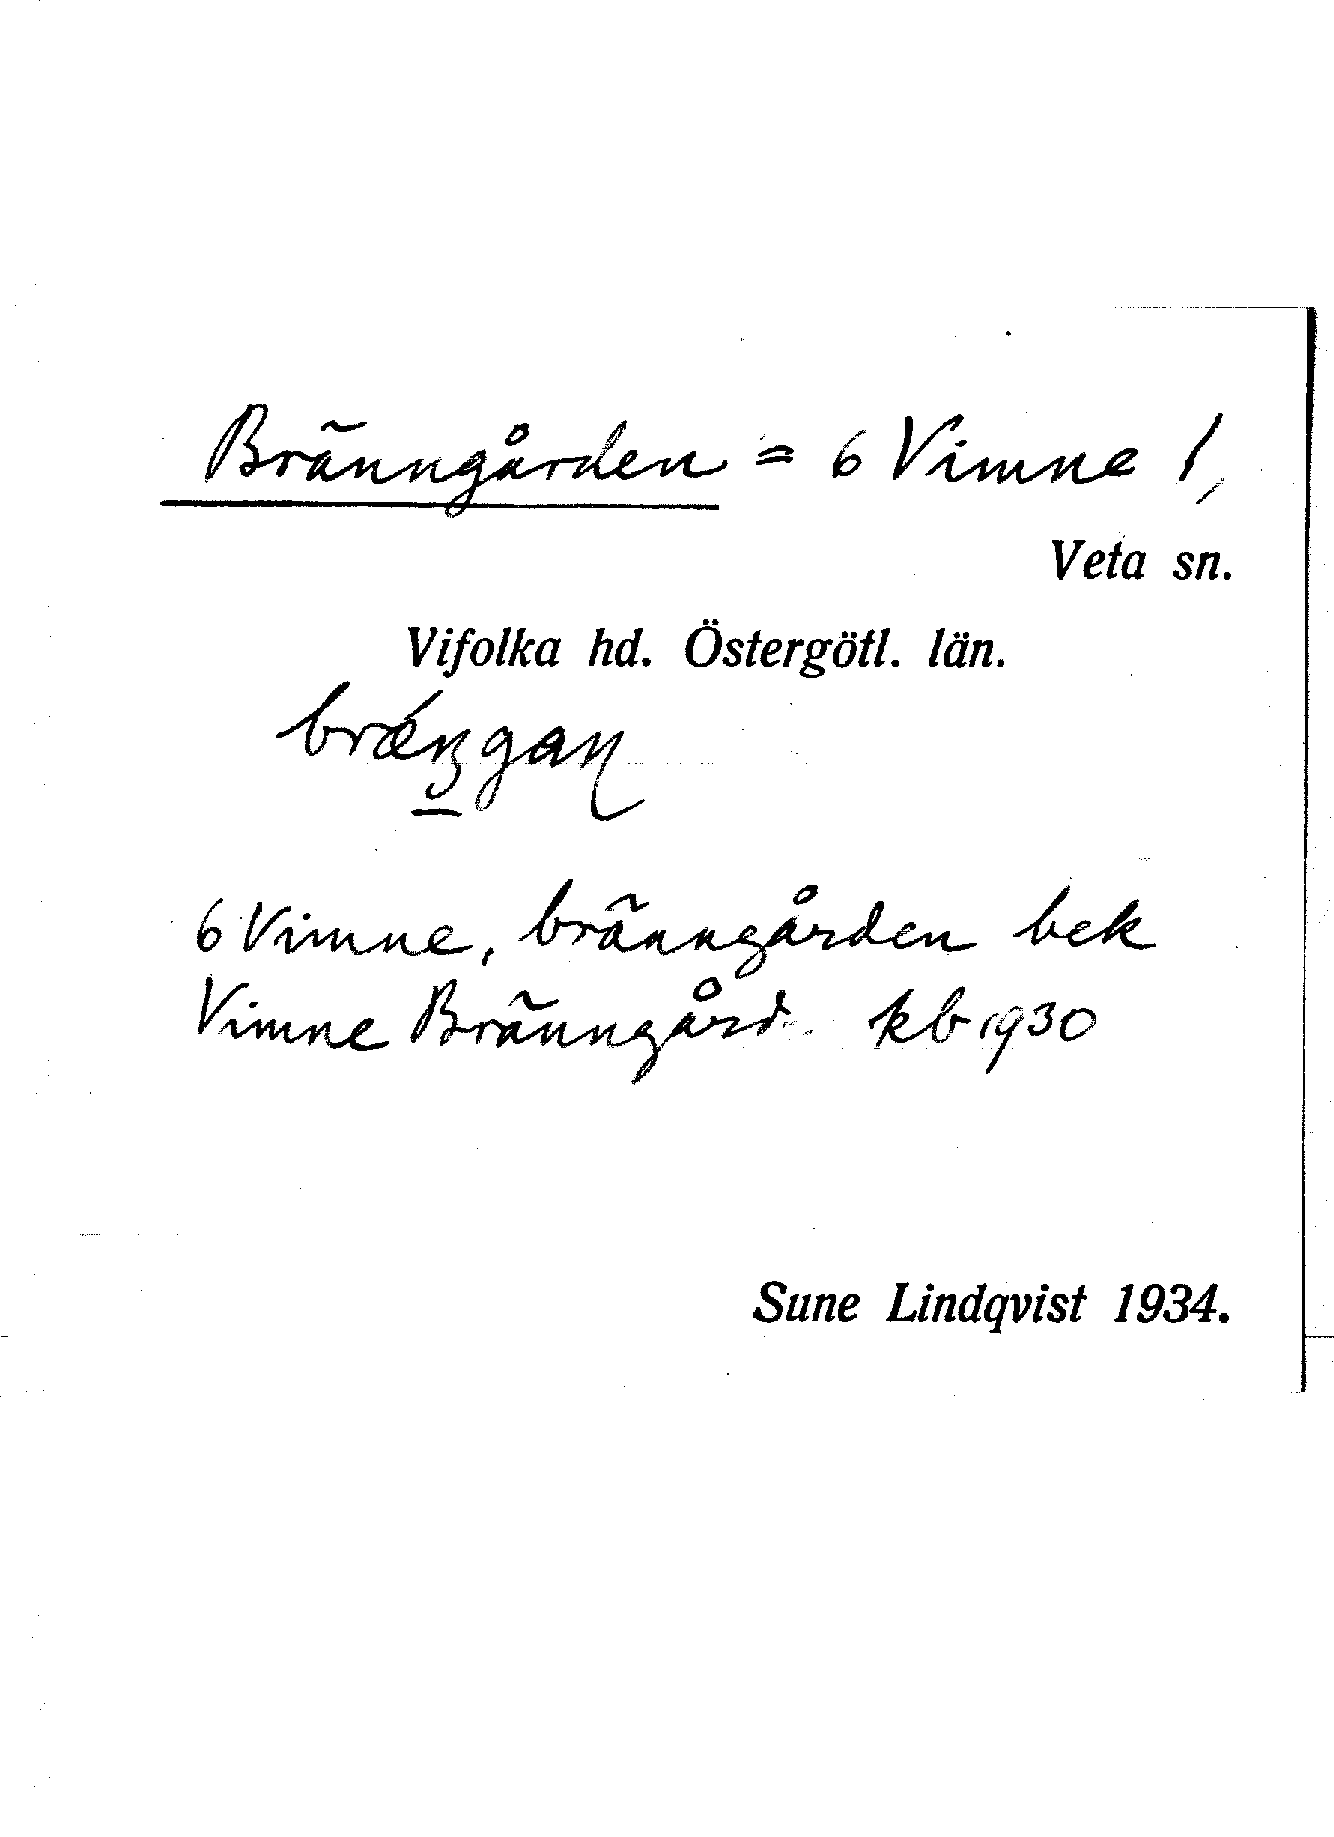 Bränngården = 6 Vimne 1,
Veta sn.
Vifolka hd. Östergötl. län.
6 Vimne, bränngården bek
Vimne Bränngård kb 1930
Sune Lindqvist 1934.